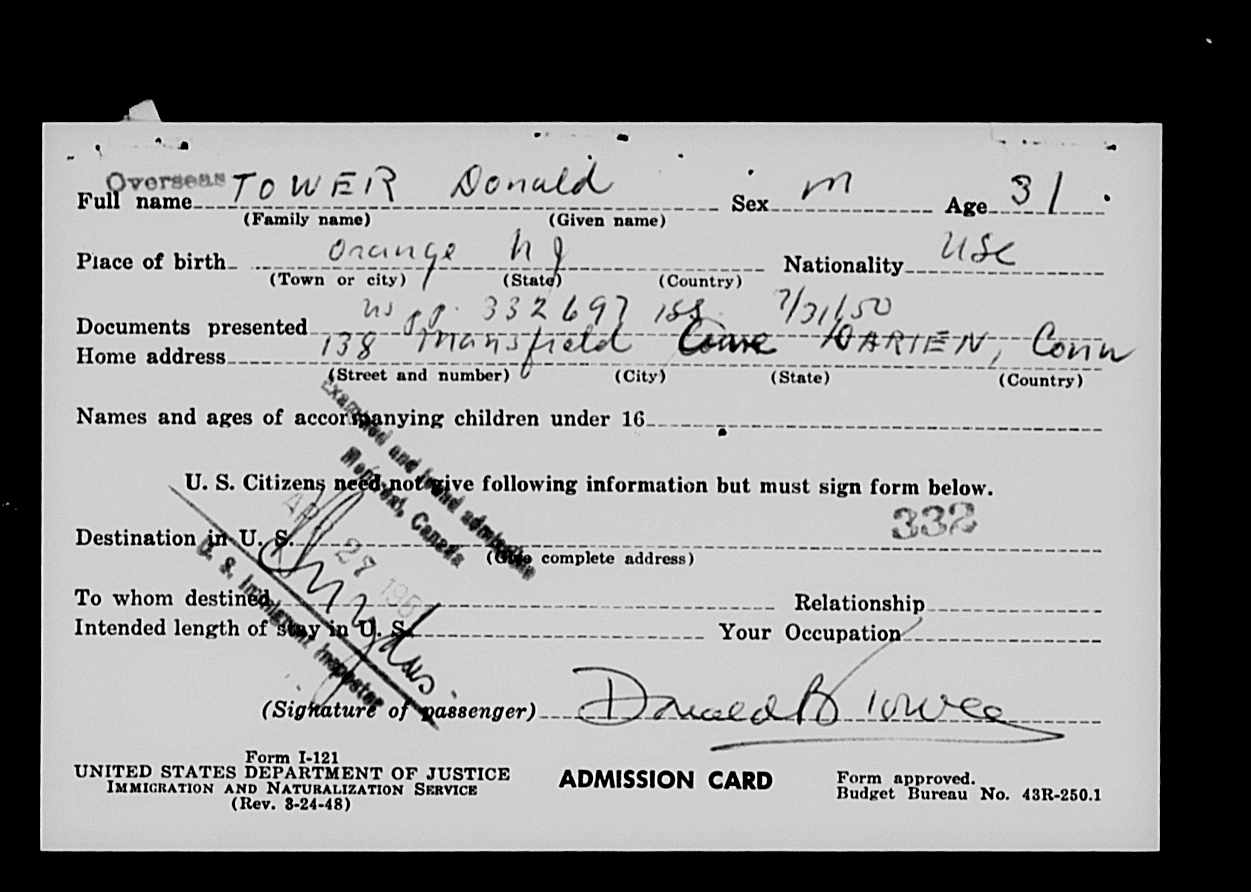 Overseas
Full name TOWER Donald Sex m Age 31
(Family name) (Given name)
Place of birth Orange NJ Nationality USC
(Town or city) (State) (Country)
Documents presented US pp. 332697 iss. 7/31/50
Home address 138 Mansfield DARIEN, Conn
(Street and number) (City) (State) (Country)
Names and ages of accompanying children under 16
Examined and found admissible
Montreal, Canada
U. S. Citizens need not give following information but must sign form below.
332
Destination in U. S.
(Give complete address)
APR 27 195
To whom destined Relationship
Intended length of stay in U. S. Your Occupation
U. S. Immigrant Inspector
(Signature of passenger) Donald B Tower
Form I-121
UNITED STATES DEPARTMENT OF JUSTICE
IMMIGRATION AND NATURALIZATION SERVICE
(Rev. 3-24-48)
ADMISSION CARD
Form approved.
Budget Bureau No. 43R-250.1